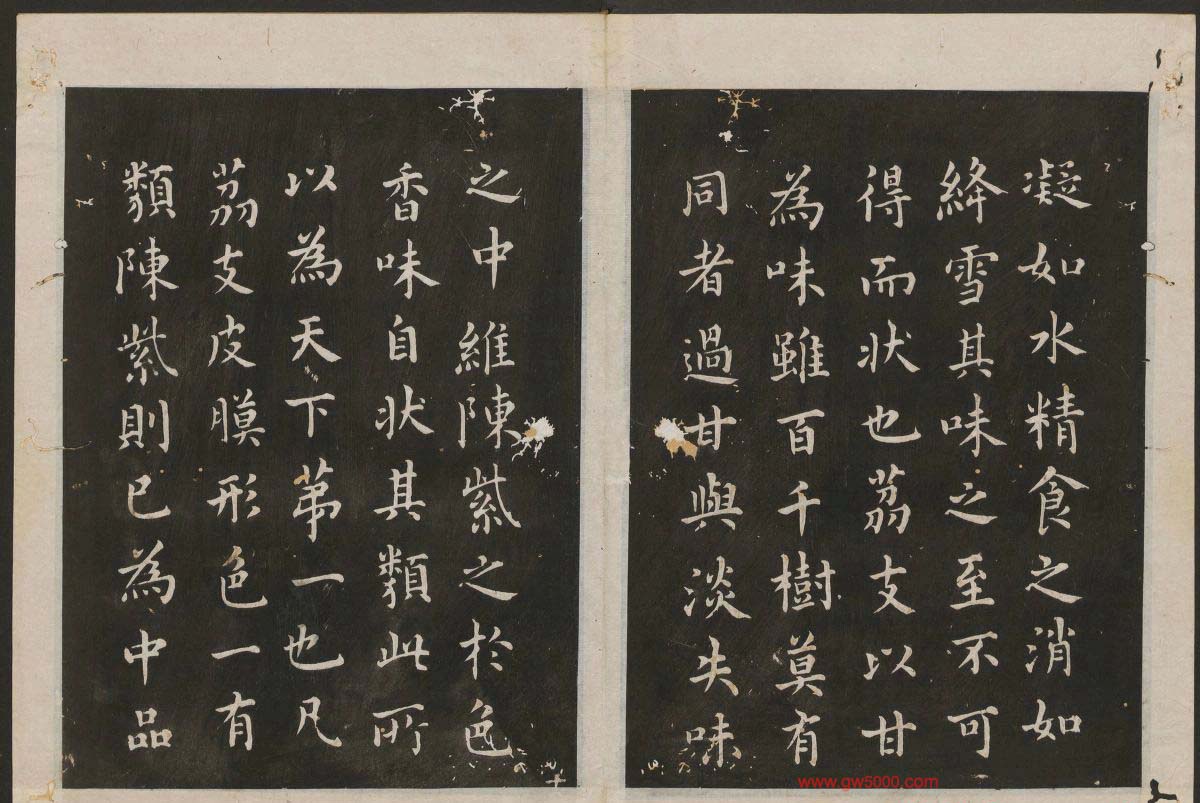 凝如水精食之消如
絳雪其味之至不可
得而状也茘支以甘
為味雖百千樹莫有
同者過甘與淡失味
之中維陳紫之於色
香味自状其類此所
以為天下苐一也凡
茘支皮膜形色一有
類陳紫則已為中品
www.gw5000.com